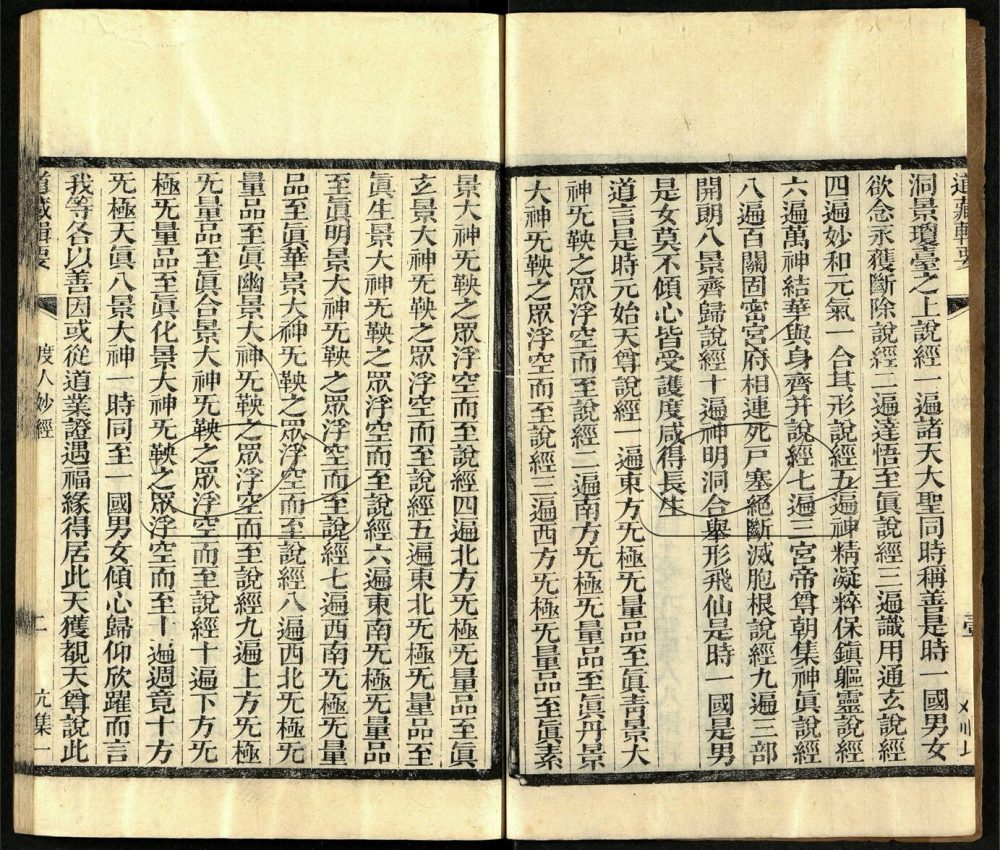 道藏輯要
洞景瓊臺之上說經一遍諸天大聖同時稱善是時一國男女
欲念永獲斷除說經二遍達悟至眞說經三遍識用通玄說經
四遍妙和元氣一合其形說經五遍神精凝粹保鎮軀靈說經
六遍萬神結華與身齊幷說經七遍三宮帝尊朝集神眞說經
八遍百關固密宮府相連死尸塞絕斷滅胞根說經九遍三部
開朗八景齊歸說經十遍神明洞合舉形飛仙是時一國是男
是女莫不傾心皆受護度咸得長生
道言是時元始天尊說經一遍東方无極无量品至眞靑景大
神无鞅之眾浮空而至說經二遍南方无極无量品至眞丹景
大神无鞅之眾浮空而至說經三遍西方无極无量品至眞素
景大神无鞅之眾浮空而至說經四遍北方无極无量品至眞
玄景大神无鞅之眾浮空而至說經五遍東北无極无量品至
眞生景大神无鞅之眾浮空而至說經六遍東南无極无量品
至眞明景大神无鞅之眾浮空而至說經七遍西南无極无量
品至眞華景大神无鞅之眾浮空而至說經八遍西北无極无
量品至眞幽景大神无鞅之眾浮空而至說經九遍上方无極
无量品至眞合景大神无鞅之眾浮空而至說經十遍下方无
極无量品至眞化景大神无鞅之眾浮空而至十遍週竟十方
无極天眞八景大神一時同至一國男女傾心歸仰欣躍而言
我等各以善因或從道業證遇福緣得居此天獲覩天尊說此
道藏輯要 度人妙經 二 亢集一